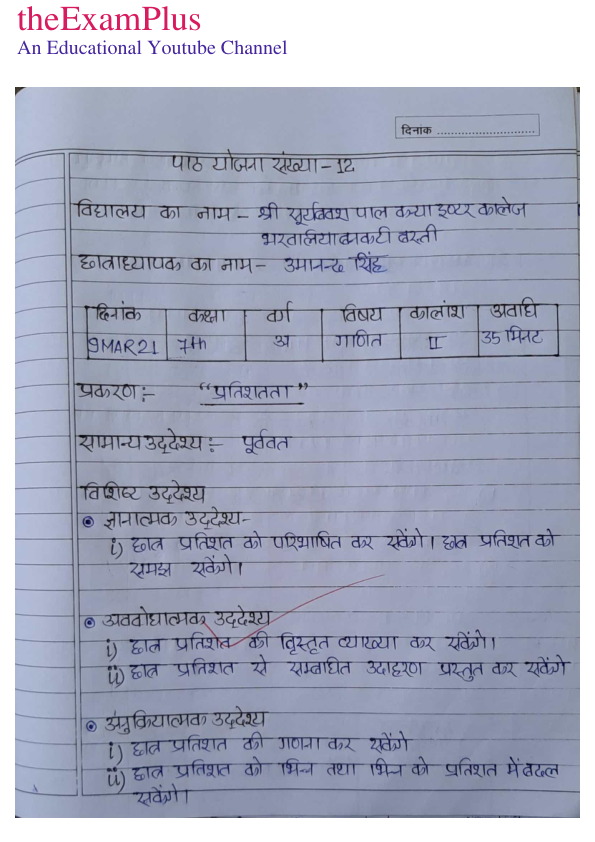 theExamPlus
An Educational Youtube Channel
दिनांक ............................
पाठ योजना संख्या - 12
विद्यालय का नाम - श्री सूर्यबक्श पाल कन्या इण्टर कालेज
बस्ती
छात्राध्यापक का नाम - उमानन्द सिंह
दिनांक कक्षा वर्ग विषय कालांश अवधि
9MAR21 7th अ गणित II 35 मिनट
प्रकरण :- "प्रतिशतता"
सामान्य उद्देश्य :- पूर्ववत
विशिष्ट उद्देश्य
ज्ञानात्मक उद्देश्य-
i) छात्र प्रतिशत को परिभाषित कर सकेंगे। छात्र प्रतिशत को
समझ सकेंगे।
अवबोधात्मक उद्देश्य
i) छात्र प्रतिशत की विस्तृत व्याख्या कर सकेंगे।
ii) छात्र प्रतिशत से सम्बधित उदाहरण प्रस्तुत कर सकेंगे
अनुक्रियात्मक उद्देश्य
i) छात्र प्रतिशत की गणना कर सकेंगे
ii) छात्र प्रतिशत को भिन्न तथा भिन्न को प्रतिशत में बदल
सकेंगे।